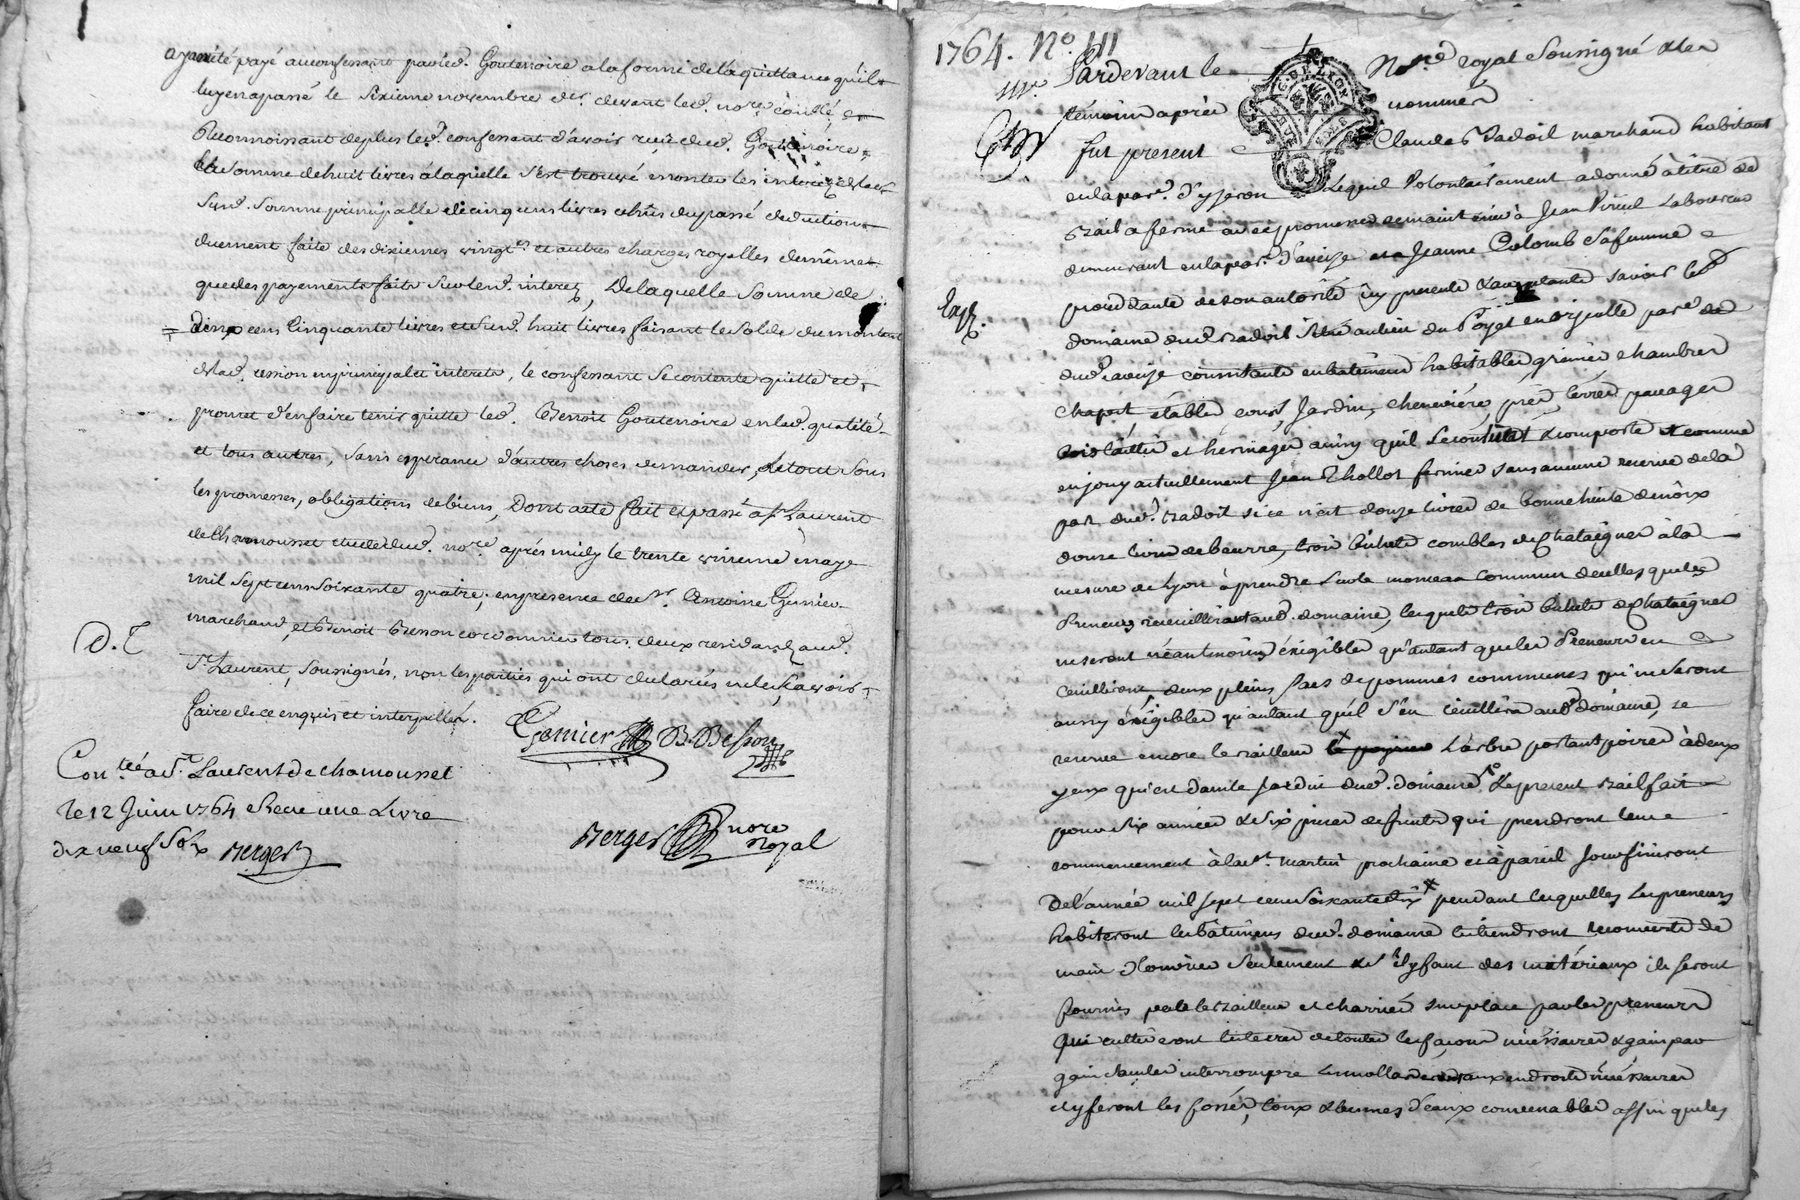 ayant été payé au confessant par led. Goutenoire a la forme de la quittance qu'il
luy en a passé le sixieme novembre der. devant led. nore.
Reconnoissant de plus led. confessant d'avoir reçu dud. Goutenoire
la somme de huit livres a laquelle s'est trouvé monter les interez de lad.
susd. somme principalle de cinq cens livres echûs du passé deduction
duement faite des dixiemes vingt. et autres charges royalles de même
que des payements faits sur lesd. interez, De laquelle somme de
deux cens cinquante livres et susd. huit livres faisant le solde du montant
de lad. cession en principal et interets, le confessant se contente quitte et
promet d'en faire tenir quitte led. Benoit Goutenoire en lad. qualité
et tous autres, sans esperance d'autres choses demander, le tout sous
les promesses, obligations de biens, Dont acte fait et passé a St. Laurent
de Chamousset etude dud. nore. après midy le trente unieme maye
mil sept cens soixante quatre, en presence de Sr. Antoine Genier
marchand, et Benoit Besson cordonnier tous deux residants aud.
D. T
St. Laurent, soussignés, non les parties qui ont declarés ne le sçavoir
faire de ce enquis et interpellés.
Genier B. Besson
Con.tté a St. Laurent de chamousset
le 12 Juin 1764 Recu une Livre
dix neuf sols Berger
Berger nore Royal
1764. No. 111
Pardevant le Nore. royal soussigné et les
témoins après nommés
fut present Claude Badoil marchand habitant
en la par. d'yzeron Lequel volontairement a donné à titre de
Bail a ferme avec promesse de maintenue à Jean Viricel Laboureur
demeurant en la par. d'aveize et a Jeanne Colomb sa femme
Exp.
procedante de son autorité icy presents et acceptants savoir le
domaine dud. Badoil situé au lieu du en parse. de
dud. aveize consistant en batiments habitables, grenier chambres
chapit étables cour, Jardin, chenevière, prés, terres pacages
bois taillis et hermages ainsy qu'il se consiste et comporte et comme
en jouy actuellement Jean Thollot fermier sans aucune reserve de la
part dud. Badoil si ce n'est douze livres de bonne huile de noix
douze livres de beurre, trois bichets combles de Chataignes à la
mesure de Lyon à prendre sur le monceau commun de celles que les
Preneurs recueilliront aud. domaine, lesquels trois bichets de Chataignes
ne seront néantmoins éxigibles qu'autant que les Preneurs en
cueilliront, deux pleins sacs de pommes communes qui ne seront
aussy éxigibles qu'autant qu'il s'en cueillira aud. domaine, se
reserve encore le Bailleur L'arbre portant poires à deux
yeux qui est dans le jardin dud. domaine, Le present Bail fait
pour six années et six prises de fruits qui prendront leur
commencement à la St. martin prochaine et à pareil jour finiront
De l'année mil sept cens soixante dix pendant lesquelles les preneurs
habiteront les bâtimens dud. domaine les tiendront recouverts de
main d'ouvrier seulement et s'il y faut des matériaux ils seront
fournis par le Bailleur et charriés sur place par les preneurs
qui cultiveront les terres de toutes les façons nécessaires et gain par
gain sans les interrompre endroits nécessaires
et y feront les fossés, et levines d'eaux convenables affin que les